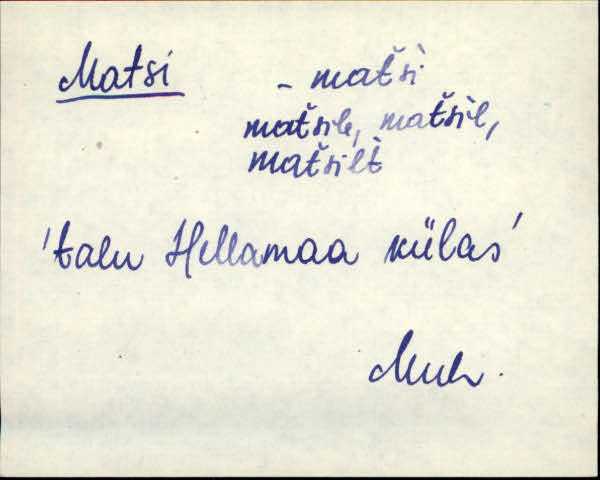 Matsi - maťši
maťsile, maťsil,
maťsilt
'talu Hellamaa külas'
Muh.